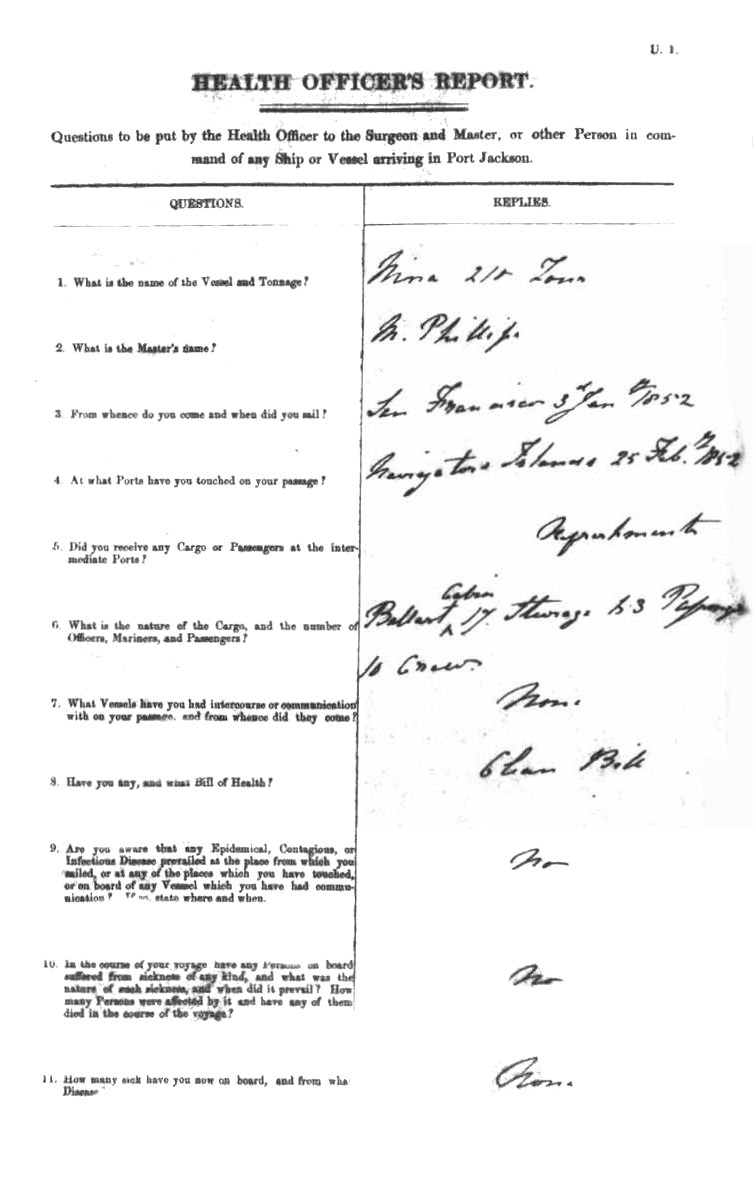 U. 1.
HEALTH OFFICER'S REPORT.
Questions to be put by the Health Officer to the Surgeon and Master, or other Person in com-
mand of any Ship or Vessel arriving in Port Jackson.
QUESTIONS.
REPLIES.
1. What is the name of the Vessel and Tonnage?
Nina 210 Tons
2. What is the Master's name?
M. Phillips
3. From whence do you come and when did you sail?
San Francisco 3rd Jany 1852
4. At what Ports have you touched on your passage?
Navigators Islands 25 Feby 1852
5. Did you receive any Cargo or Passengers at the inter-
mediate Ports?
Refreshments
6. What is the nature of the Cargo, and the number of
Officers, Mariners, and Passengers?
Ballast Cabin 17. Steerage 53 Passengers
10 Crew.
7. What Vessels have you had intercourse or communication
with on your passage, and from whence did they come?
None
8. Have you any, and what Bill of Health?
Clean Bill
9. Are you aware that any Epidemical, Contagious, or
Infectious Disease prevailed at the place from which you
sailed, or at any of the places which you have touched,
or on board of any Vessel which you have had commu-
nication? state where and when.
No
10. In the course of your voyage have any Persons on board
suffered from sickness of any kind, and what was the
nature of such sickness, and when did it prevail? How
many Persons were affected by it and have any of them
died in the course of the voyage?
No
11. How many sick have you now on board, and from wha
Disease
None